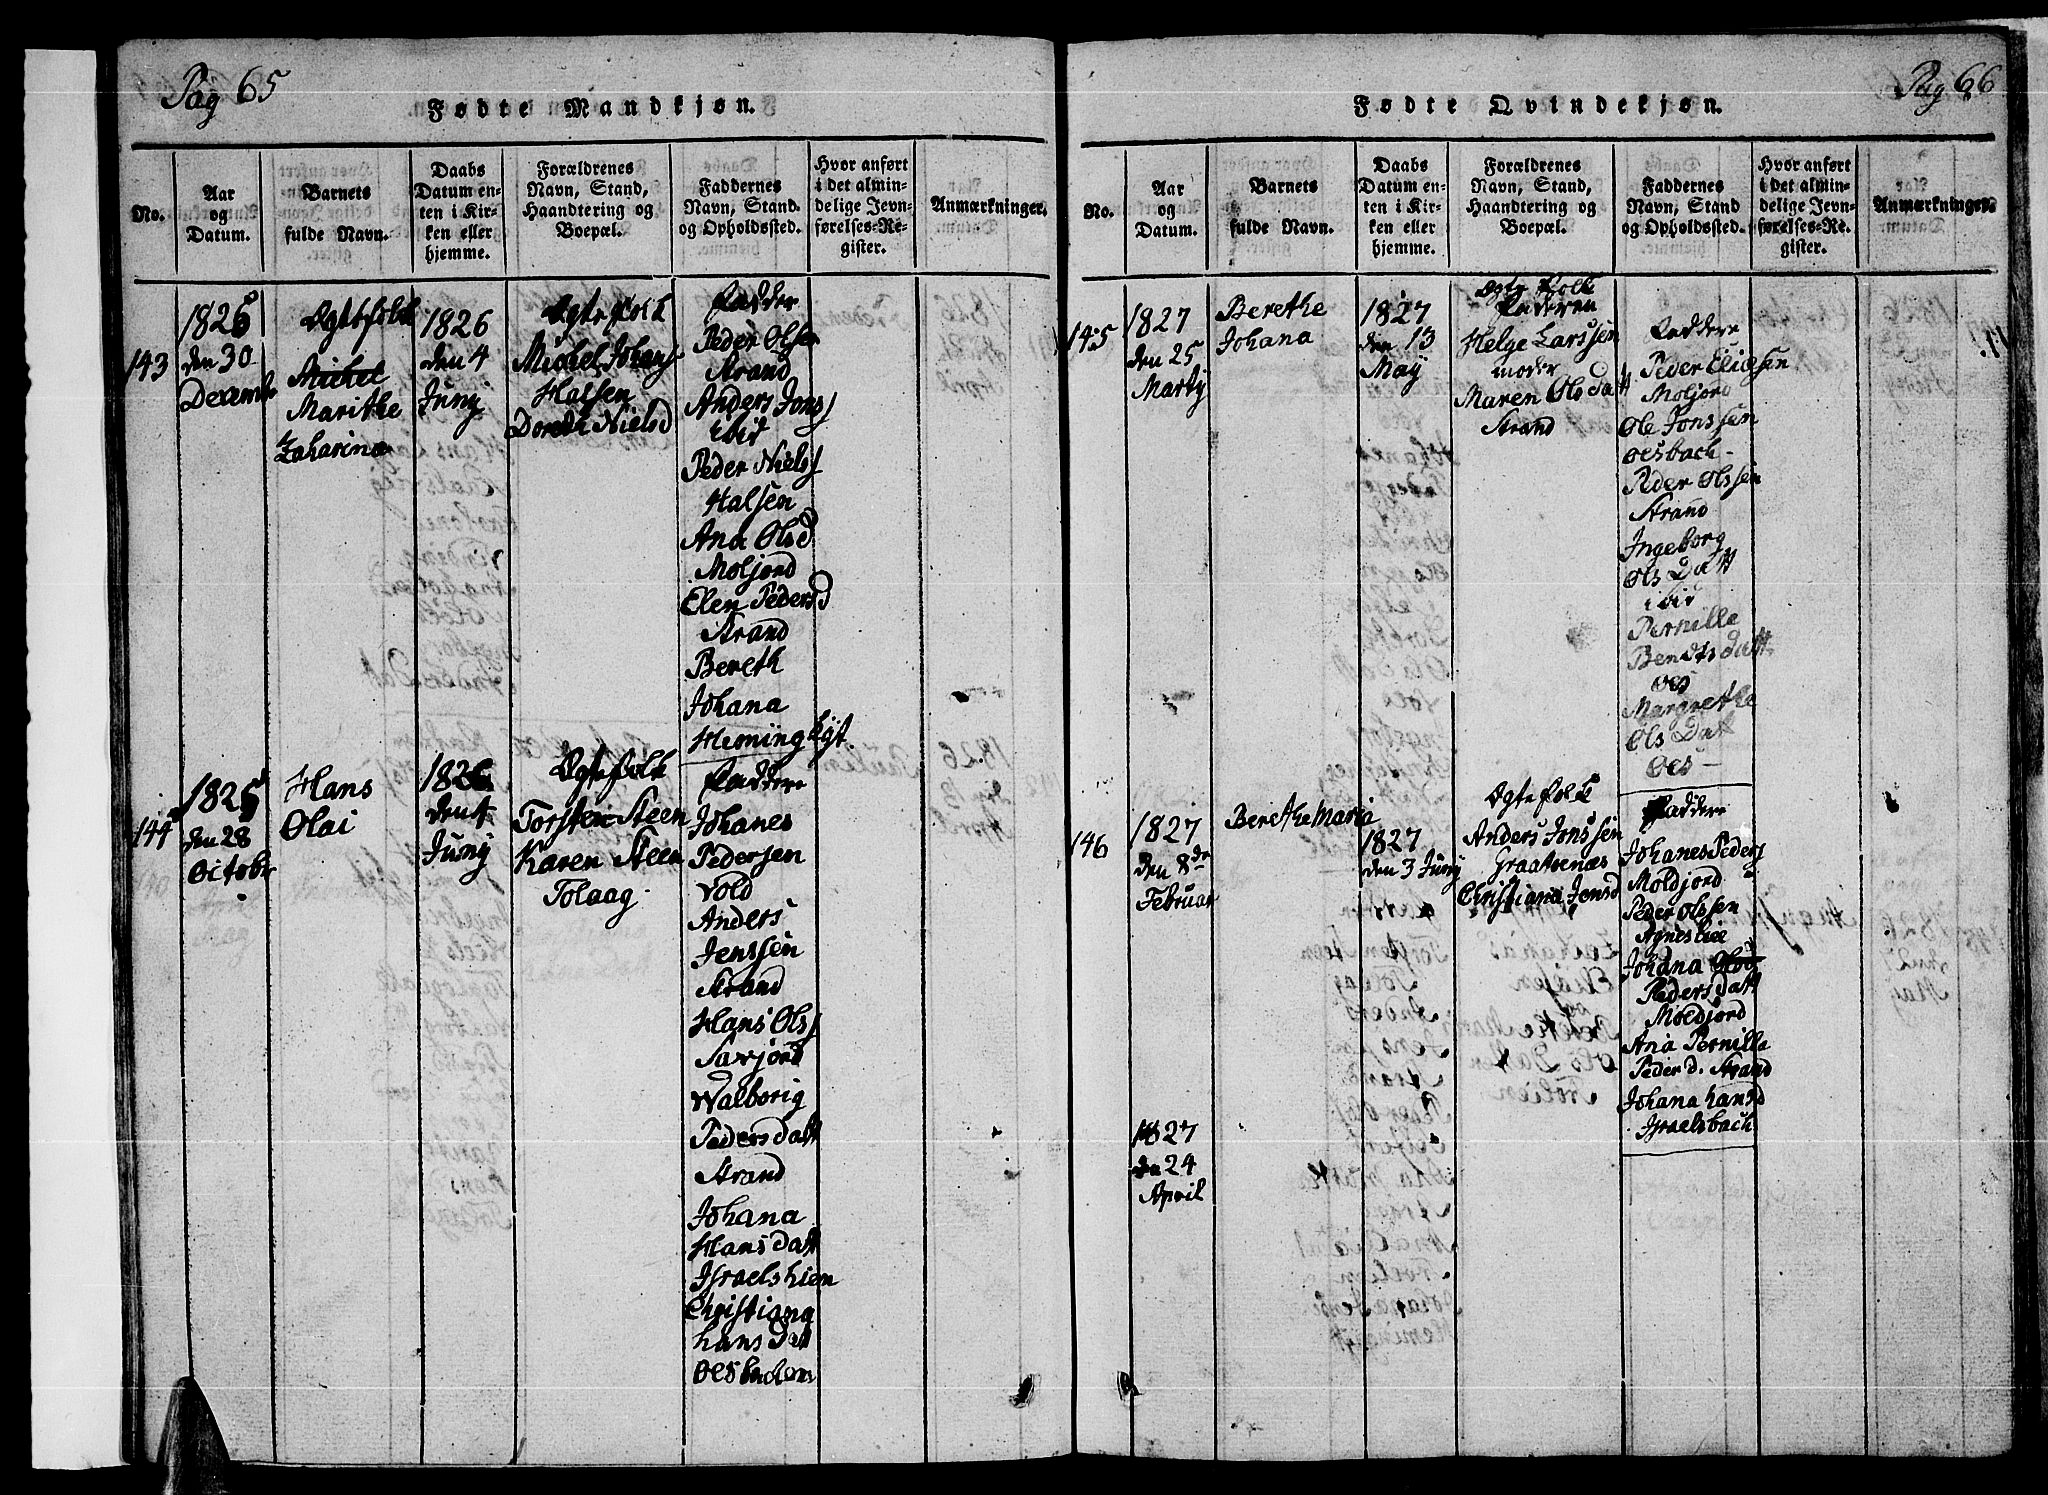 Pag 65
Fødte Mandkjøn.
No.
Aar
og
Datum.
Barnets
fulde Navn.
Daabs
Datum en-
ten i Kir-
ken eller
hjemme.
Forældrenes
Navn, Stand,
Haandtering og
Boepæl.
Faddernes
Navn, Stand.
og Opholdssted.
Hvor anført
i det almin-
delige Jevn-
førelses-Re-
gister.
Anmærkninger.
143
1825
den 30
Decemb
Ægtefolk
Michel
Marithe
Zaharina
1826
den 4
Junij
Ægtefolk
Michel Johans
Halsen
Dorede Nielsd
Fadder
Peder Olsen
Strand
Anders Jons
ibid
Peder Niels
Halsen
Ana Olsd
Moljord
Elen Pedersd
Strand
Bereth
Johana
Heminghyt.
144
1825
den 28
Octobr
Hans
Olai
1826
den 4
Junij
Ægtefolk
Torsten Steen
Karen Steen
Tolaag.
Faddere
Johanes
Pedersen
Vold
Anders
Jenssen
Strand
Hans Ols
Saxjord
Walborig
Pedersdatt
Strand
Johana
Hansdatt
Israelshien
Christiana
hans Dat
Pag 66
Fødte Qvindekjøn.
No.
Aar
og
Datum.
Barnets
fulde Navn.
Daabs
Datum en-
ten i Kir-
ken eller
hjemme.
Forældrenes
Navn, Stand,
Haandtering og
Boepæl.
Faddernes
Navn, Stand
og Opholdssted.
Hvor anført
i det almin-
delige Jevn-
førelses-Re-
gister.
Anmærkninger.
145
1827
den 25
Martij
Berethe
Johana
1827
den 13
May
Ægte Folk
Faderen
Helge Larssen
moder
Maren Olsdatt
Strand
Faddere
Peder Eliasen
Moljord
Ole Jonssen
Oesbach
Peder Olssen
Strand
Ingeborg
Ols Datt
ibid
Pernille
Bendtsdatt
Oes
Margrethe
Ols Dat
Oes
146
1827
den 8de
Februar
Berethe Maria
1827
den 3 Junij
Ægte Folk
Anders Jonssen
Graatenæs
Christiana Jensd
Faddere
Johanes Peders
Moldjord
Peder Olssen
Johana Olsd
Pedersdatt
Moldjord
Ana Pernilla
Peder d. Strand
Johana hansd
Israelsbach
1827
den 24
April